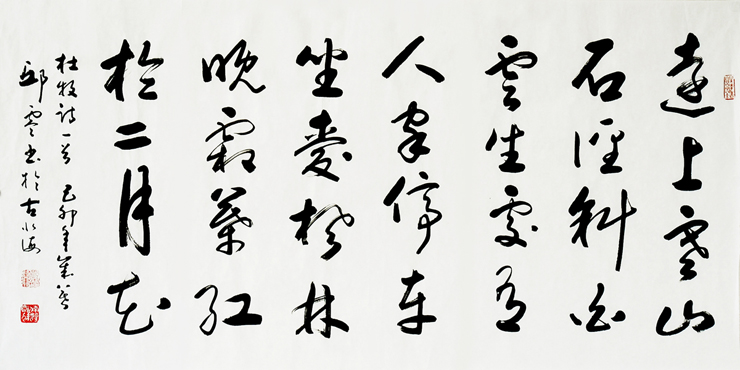 遠上寒山
石徑斜白
雲生處有
人家停車
坐愛楓林
晚霜葉紅
於二月花
杜牧詩一首 己卯年
邱零书於古北海